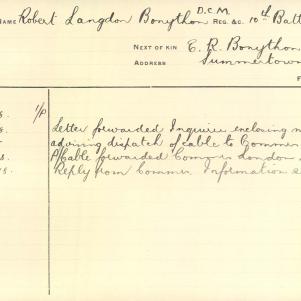 D.C.M.
NAME Robert Langdon Bonython REG. &C. 10th Batt
NEXT OF KIN C. R. Bonython
ADDRESS Summertown
F
s. 1/P
s. Letter forwarded Inquirer enclosing
advising dispatch of cable to Commr
s. P/Cable forwarded Commrs London
s. Reply from Commr Information